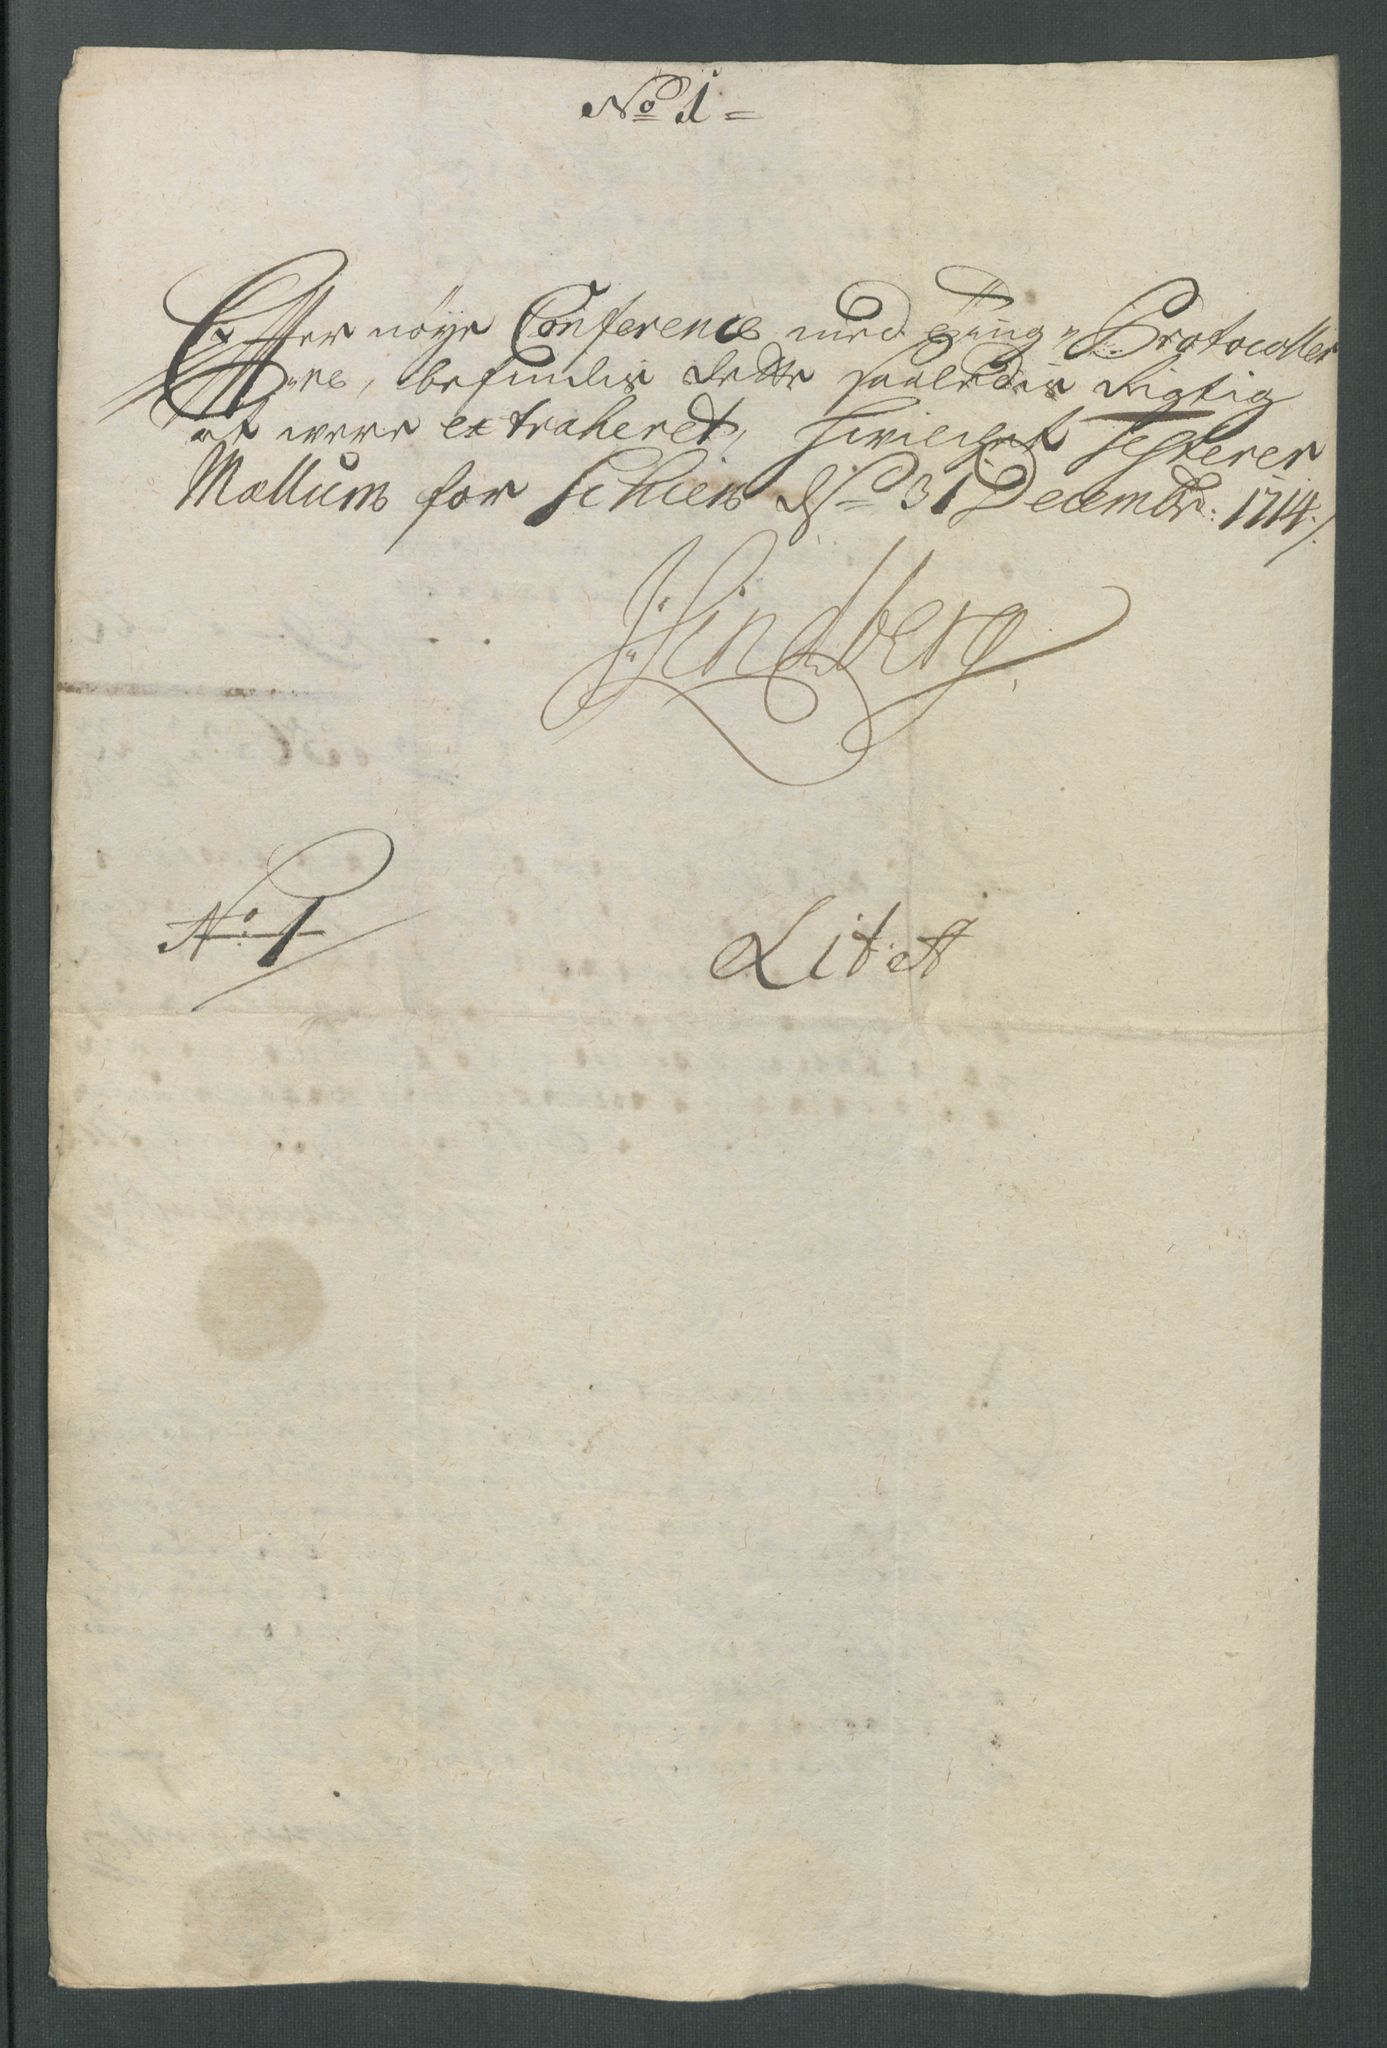 No 1 =
Efter nøye Conference med Ting- Protocoller
ne, befindis dette saaledis rigtig
at were extraheret, hvilchet testerer
Mællum for Schien d. 31 Decembr: 1714 /.
Lindberg
No: 1
Lit: A